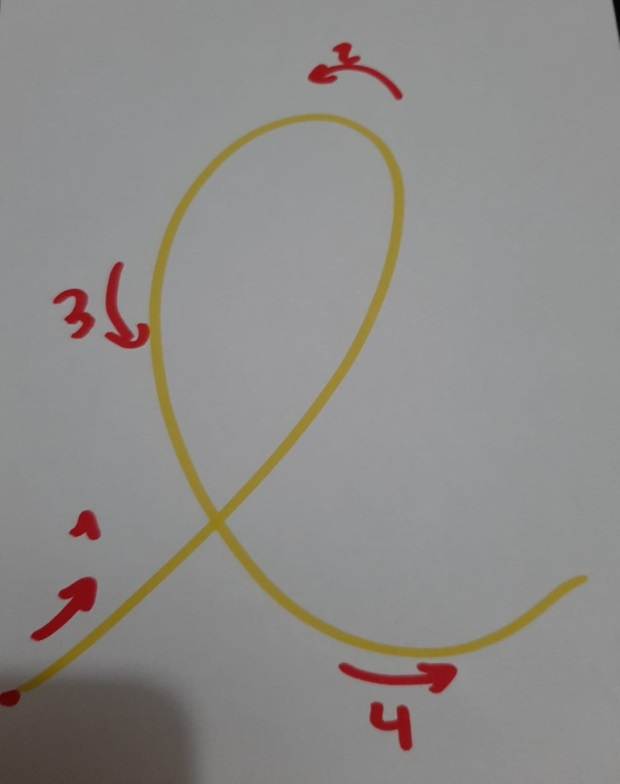 2
3
1
ℓ
4